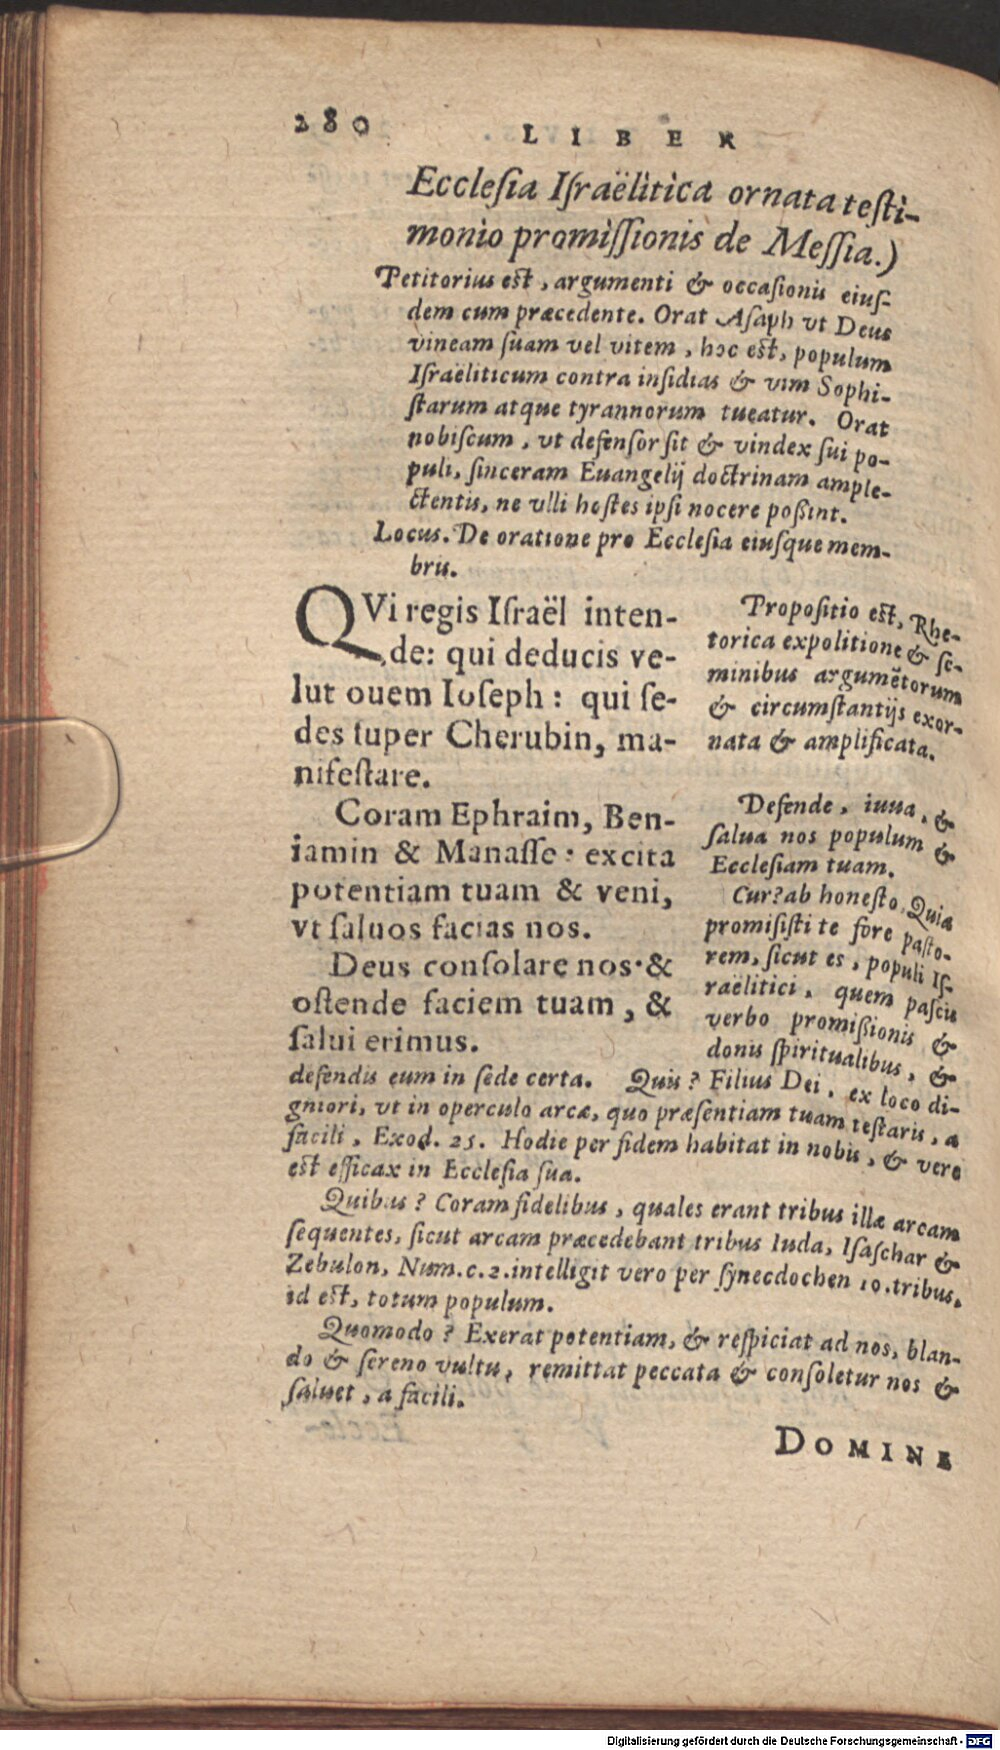 280 LIBER
Ecclesia Israëlitica ornata testi-
monio promissionis de Messia.)
Petitorius est, argumenti & occasionis eius-
dem cum præcedente. Orat Asaph vt Deus
vineam suam vel vitem, hoc est, populum
Israëliticum contra insidias & vim Sophi-
starum atque tyrannorum tueatur. Orat
nobiscum, vt defensor sit & vindex sui po-
puli, sinceram Euangelij doctrinam ample-
ctentis, ne vlli hostes ipsi nocere poßint.
Locus. De oratione pro Ecclesia eiusque mem-
bris.
QVi regis Israël inten-
de: qui deducis ve-
lut ouem Ioseph: qui se-
des super Cherubin, ma-
nifestare.
Coram Ephraim, Ben-
iamin & Manasse: excita
potentiam tuam & veni,
vt saluos facias nos.
Deus consolare nos: &
ostende faciem tuam, &
salui erimus.
Propositio est, Rhe-
torica expolitione & se-
minibus argumẽtorum
& circumstantijs exor-
nata & amplificata.
Defende, iuua, &
salua nos populum &
Ecclesiam tuam.
Cur? ab honesto. Quia
promisisti te fore pasto-
rem, sicut es, populi Is-
raëlitici, quem pascis
verbo promißionis &
donis spiritualibus, &
defendis eum in sede certa. Quis? Filius Dei, ex loco di-
gniori, vt in operculo arcæ, quo præsentiam tuam testaris, a
facili, Exod. 25. Hodie per fidem habitat in nobis, & vere
est efficax in Ecclesia sua.
Quibus? Coram fidelibus, quales erant tribus illæ arcam
sequentes, sicut arcam præcedebant tribus Iuda, Isaschar &
Zebulon, Num.c.2.intelligit vero per synecdochen 10.tribus,
id est, totum populum.
Quomodo? Exerat potentiam, & respiciat ad nos, blan-
do & sereno vultu, remittat peccata & consoletur nos &
saluet, a facili.
DOMINE
Digitalisierung gefördert durch die Deutsche Forschungsgemeinschaft - DFG